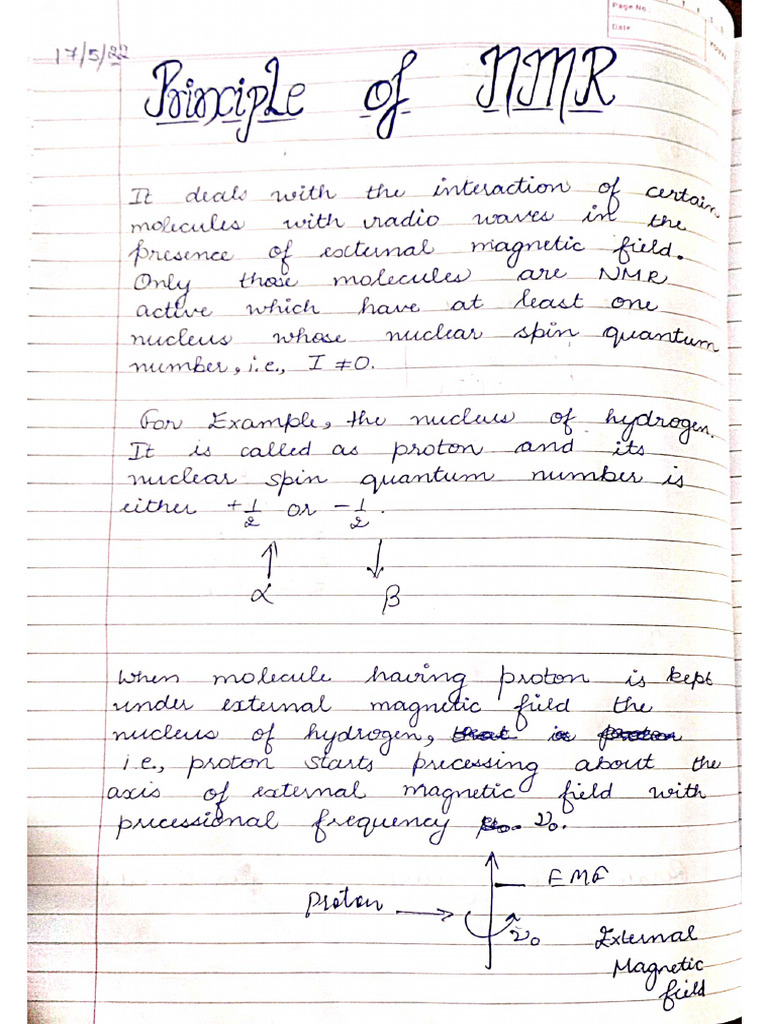 Page No.
Date
17/5/22
Principle of NMR
It deals with the interaction of certain
molecules with radio waves in the
presence of external magnetic field.
Only those molecules are NMR
active which have at least one
nucleus whose nuclear spin quantum
number, i.e., I ≠ 0.
For Example, the nucleus of hydrogen.
It is called as proton and its
nuclear spin quantum number is
either +1/2 or -1/2.
↑ ↓
α β
When molecule having proton is kept
under external magnetic field the
nucleus of hydrogen, that is proton
i.e., proton starts precessing about the
axis of external magnetic field with
precessional frequency ν₀.
EMF
Proton → ν₀
External
Magnetic
field